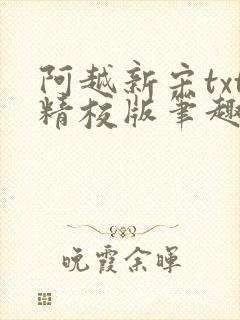 阿越新宋txt
精校版笔趣
晚霞余晖